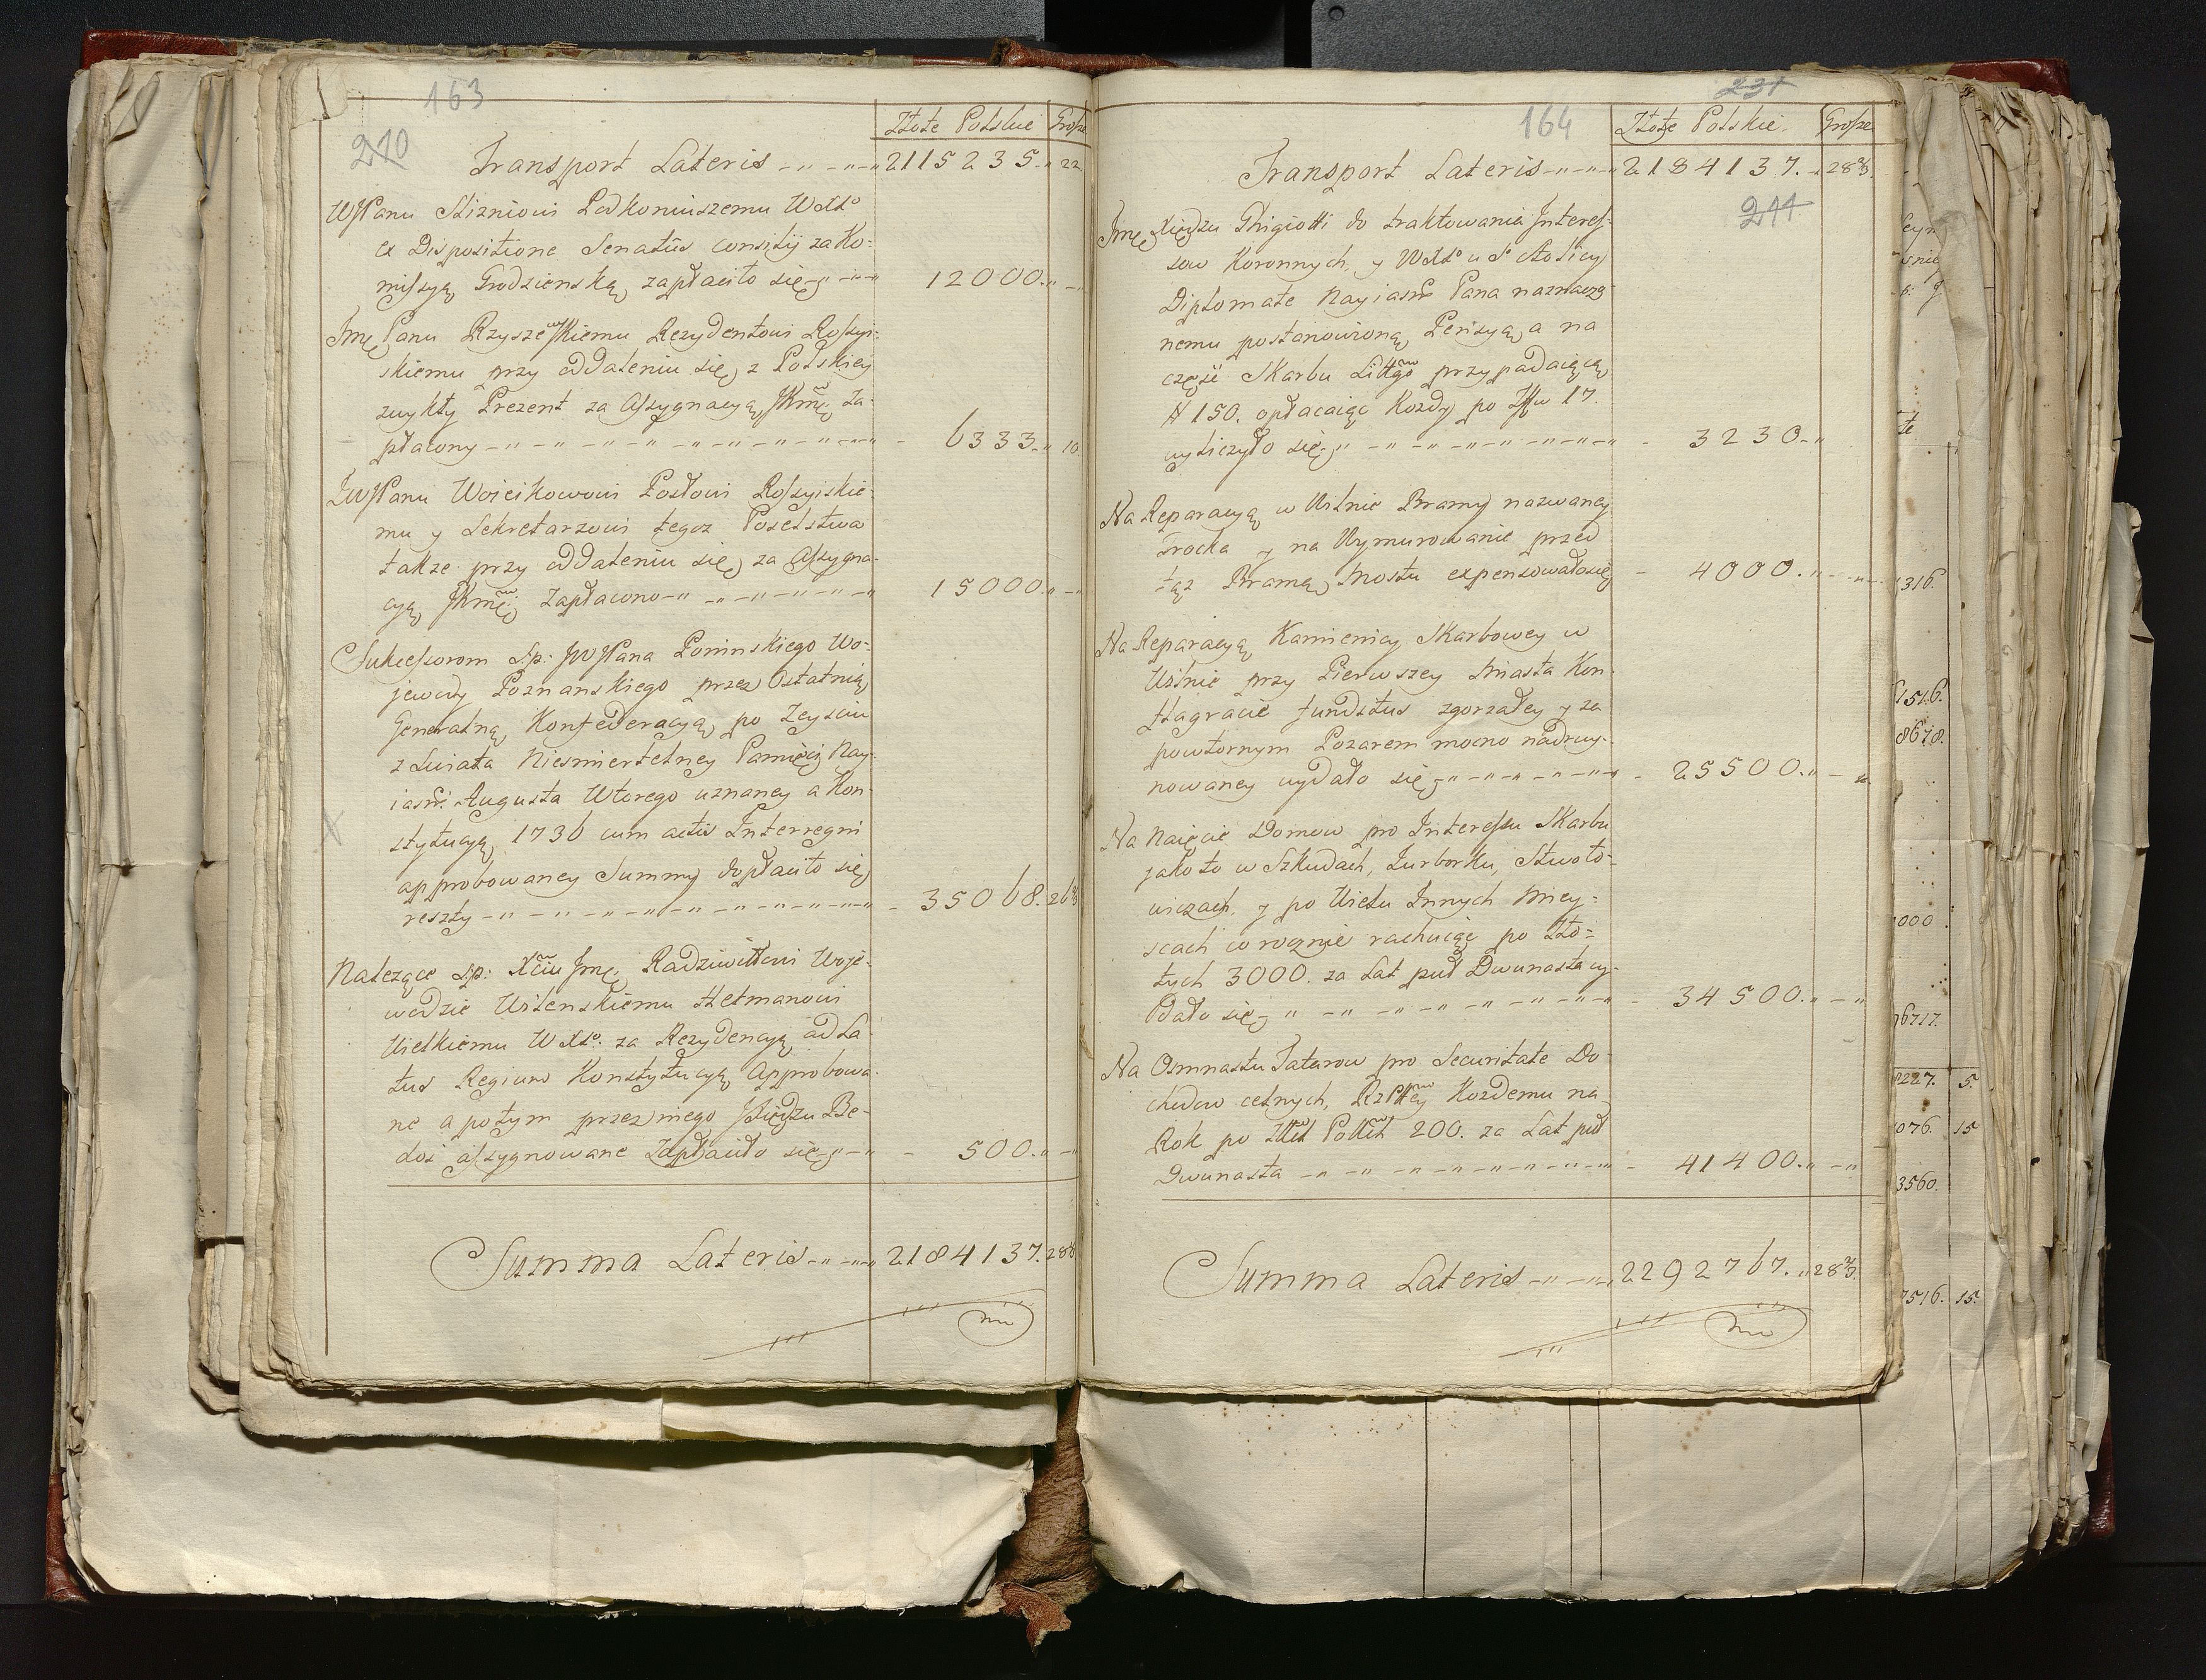 163
210
Złote Polskie Grosze
Transport Lateris 2115235. 22
WJPanu Stizniowi Podkoniuszemu WXLo
ex Dispositione Senatûs consilij za Ko:
missyą Grodzienską zapłaciło się 12000.
Jmę Panu Rzyszewskiemu Rezydentowi Rossyi:
skiemu przy oddaleniu się z Polskiey
zwykły Prezent za Assygnacyą JKmći za:
płacony 6333. 10.
JWJPanu Woieikowowi Posłowi Rossyiskie:
mu y Sekretarzowi tegoz Poselstwa
takze przy oddaleniu się za Assygna:
cyą JKmći Zapłacono 15000.
Sukcessorom S.p: JWJPana Poninskiego Wo:
jewody Poznanskiego przez Ostatnią
Generalną Konfederacyą po Zeysciu
z Swiata Niesmiertelney Pamięci Nay:
iasn: Augusta Wtorego uznaney a Kon:
stytucyą 1736 cum actis Interregni
approbowaney Summy dopłaciło się
reszty 35068. 26⅔
Nalezące S.p: Xćiu Jmę Radziwiłłowi Woje:
wodzie Wilenskiemu Hetmanowi
Wielkiemu WXLo: za Rezydencyą ad La:
tus Regium Konstytucyą Approbowa:
ne a potym przez niego Xiędzu Be:
dos assygnowane Zapłaciło się 500.
Summa Lateris 2184137. 28⅔
231
164
Złote Polskie. Grosze
Transport Lateris 2184137. 28⅔.
211
Jmę Xiędzu Ghigiotti do traktowania Interes:
sow Koronnych, y WXLo u So Stolicy
Diplomate Nayiasn Pana naznaczo:
nemu postanowioną Pensyą a na
część Skarbu Littgo przypadaiącą
# 150. opłacaiąc Kozdy po Zł 17.
wyliczyło się 3230.
Na Reparacyą w Wilnie Bramy nazwaney
Trocka y na Wymurowanie przed
tąz Bramą Mostu expensowało się 4000.
Na Reparacyą Kamienicy Skarbowey w
Wilnie przy Pierwszey Miasta Kon:
flagracie funditus zgorzałey y za
powtornym Pozarem mocno nadruy:
nowaney wydało się 25500.
Na Naięcie Domow pro Interessu Skarbu
jako to w Szkudach, Jurborku, Stwoło:
wiczach, y po Wielu Innych Miey:
scach w rocznie rachuiąc po Zło:
tych 3000. za Lat puł Dwunasta wy:
dało się 34500.
Na Osmnastu Tatarow pro Securitate Do:
chodow celnych, Rzpltey Kozdemu na
Rok po Złłch Polłch 200. za Lat puł
Dwunasta 41400.
Summa Lateris 2292767. 28⅔.
316.
1516.
8678.
000
6717.
227. 5.
076. 15
3560.
7516. 15.